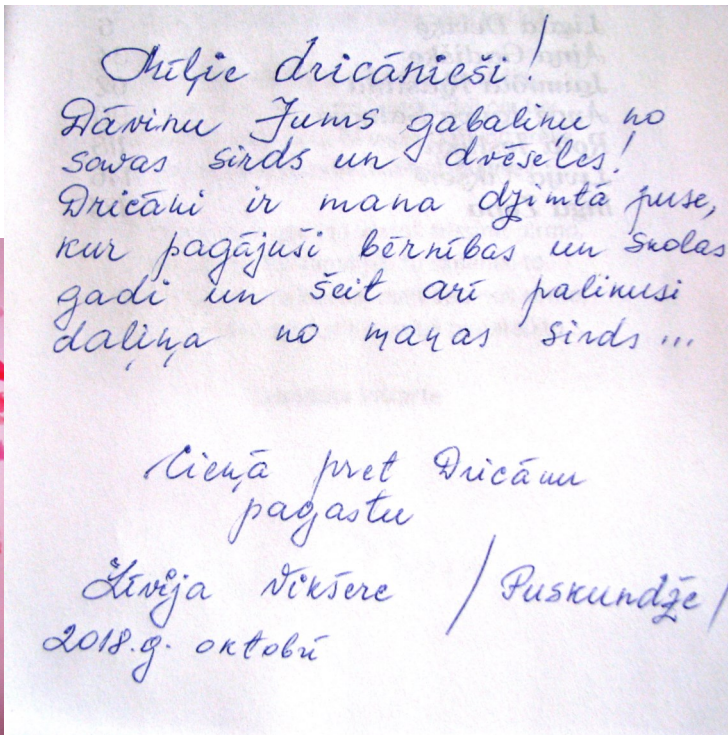 Mīļie dricānieši!
Dāvinu Jums gabaliņu no
savas sirds un dvēseles!
Dricāni ir mana dzimtā puse,
kur pagājuši bērnības un skolas
gadi un šeit arī palikusi
daļiņa no maņas sirds...
Cieņā pret Dricānu
pagastu
Līvija Vīksere /Puskundže/
2018.g. oktobrī